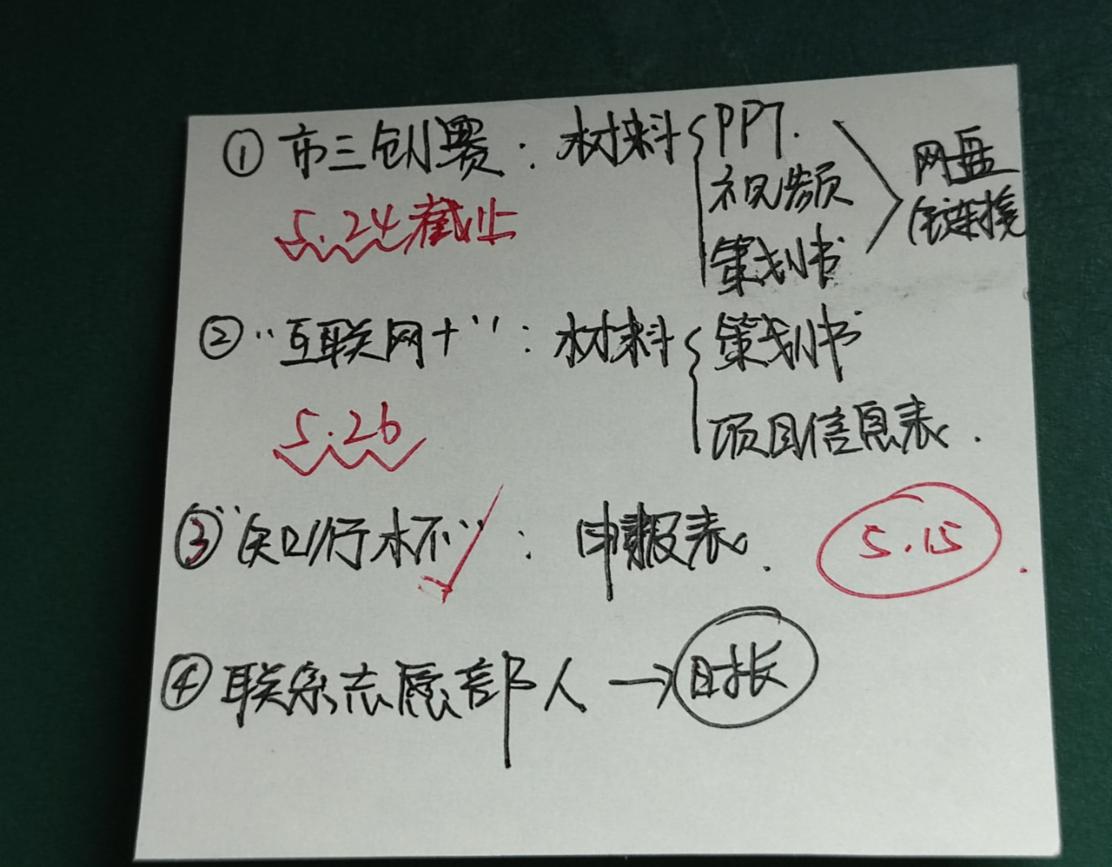 ①市三创赛：材料{PPT.
视频
策划书
网盘
链接
5.24截止
②"互联网+"：材料{策划书
项目信息表.
5.26
③"知行杯"：申报表. 5.15
④联系志愿部人→时长